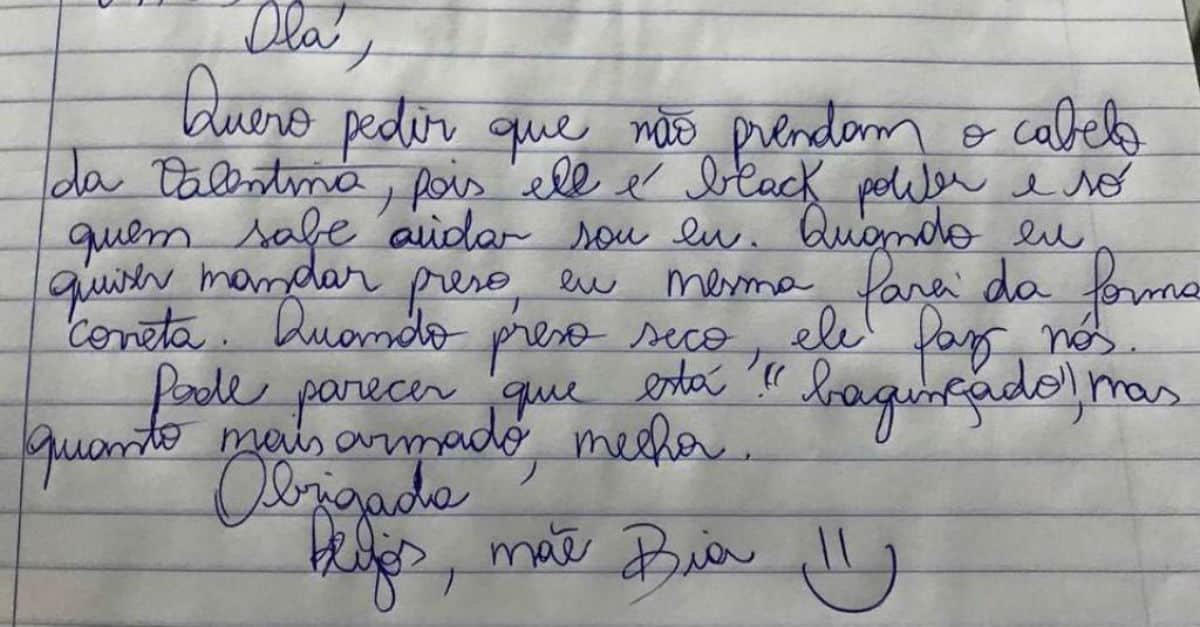 Olá,
Quero pedir que não prendam o cabelo
da Valentina, pois ele é black power e só
quem sabe cuidar sou eu. Quando eu
quiser mandar preso, eu mesma farei da forma
correta. Quando preso seco, ele faz nós.
Pode parecer que está "bagunçado", mas
quanto mais armado, melhor.
Obrigada
Beijos, mãe Bia